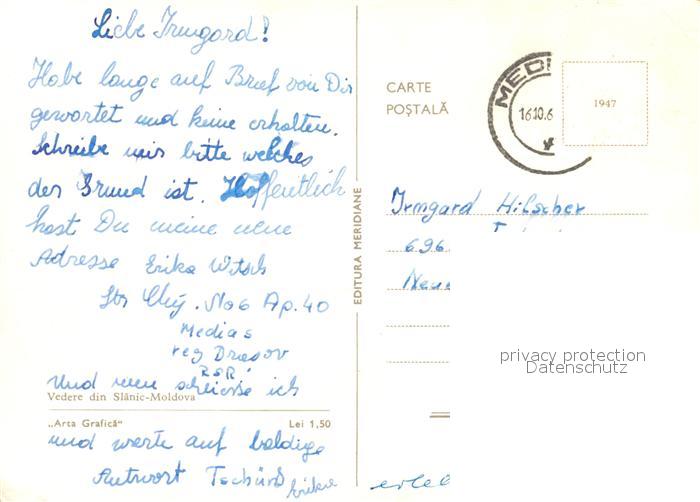 Liebe Irmgard!
Habe lange auf Brief von Dir
gewartet und keine erhalten.
Schreibe mir bitte welches
der Grund ist. Hoffentlich
hast Du meine neue
Adresse Erika Witsch
Str Cluj. No 6 Ap. 40
Medias
reg Brasov
RSR
Und nun schliesse ich
Vedere din Slănic-Moldova
„Arta Grafică" Lei 1,50
und warte auf baldige
Antwort Tschüss
Erika
EDITURA MERIDIANE
CARTE
POȘTALĂ
MEDI
16.10.6
1947
Irmgard Hilscher
696
privacy protection
Datenschutz